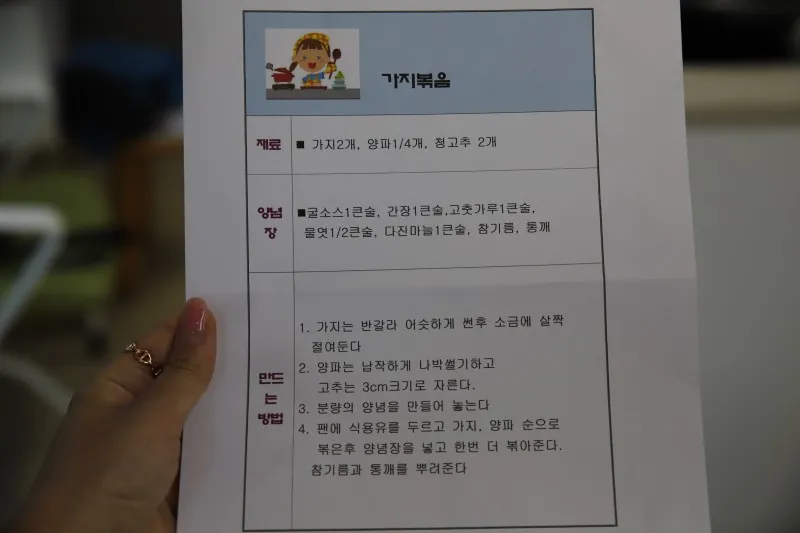 가지볶음
재료
■ 가지2개, 양파1/4개, 청고추 2개
양념
장
■굴소스1큰술, 간장1큰술,고춧가루1큰술,
물엿1/2큰술, 다진마늘1큰술, 참기름, 통깨
만드
는
방법
1. 가지는 반갈라 어슷하게 썬후 소금에 살짝
절여둔다
2. 양파는 납작하게 나박썰기하고
고추는 3cm크기로 자른다.
3. 분량의 양념을 만들어 놓는다
4. 팬에 식용유를 두르고 가지, 양파 순으로
볶은후 양념장을 넣고 한번 더 볶아준다.
참기름과 통깨를 뿌려준다